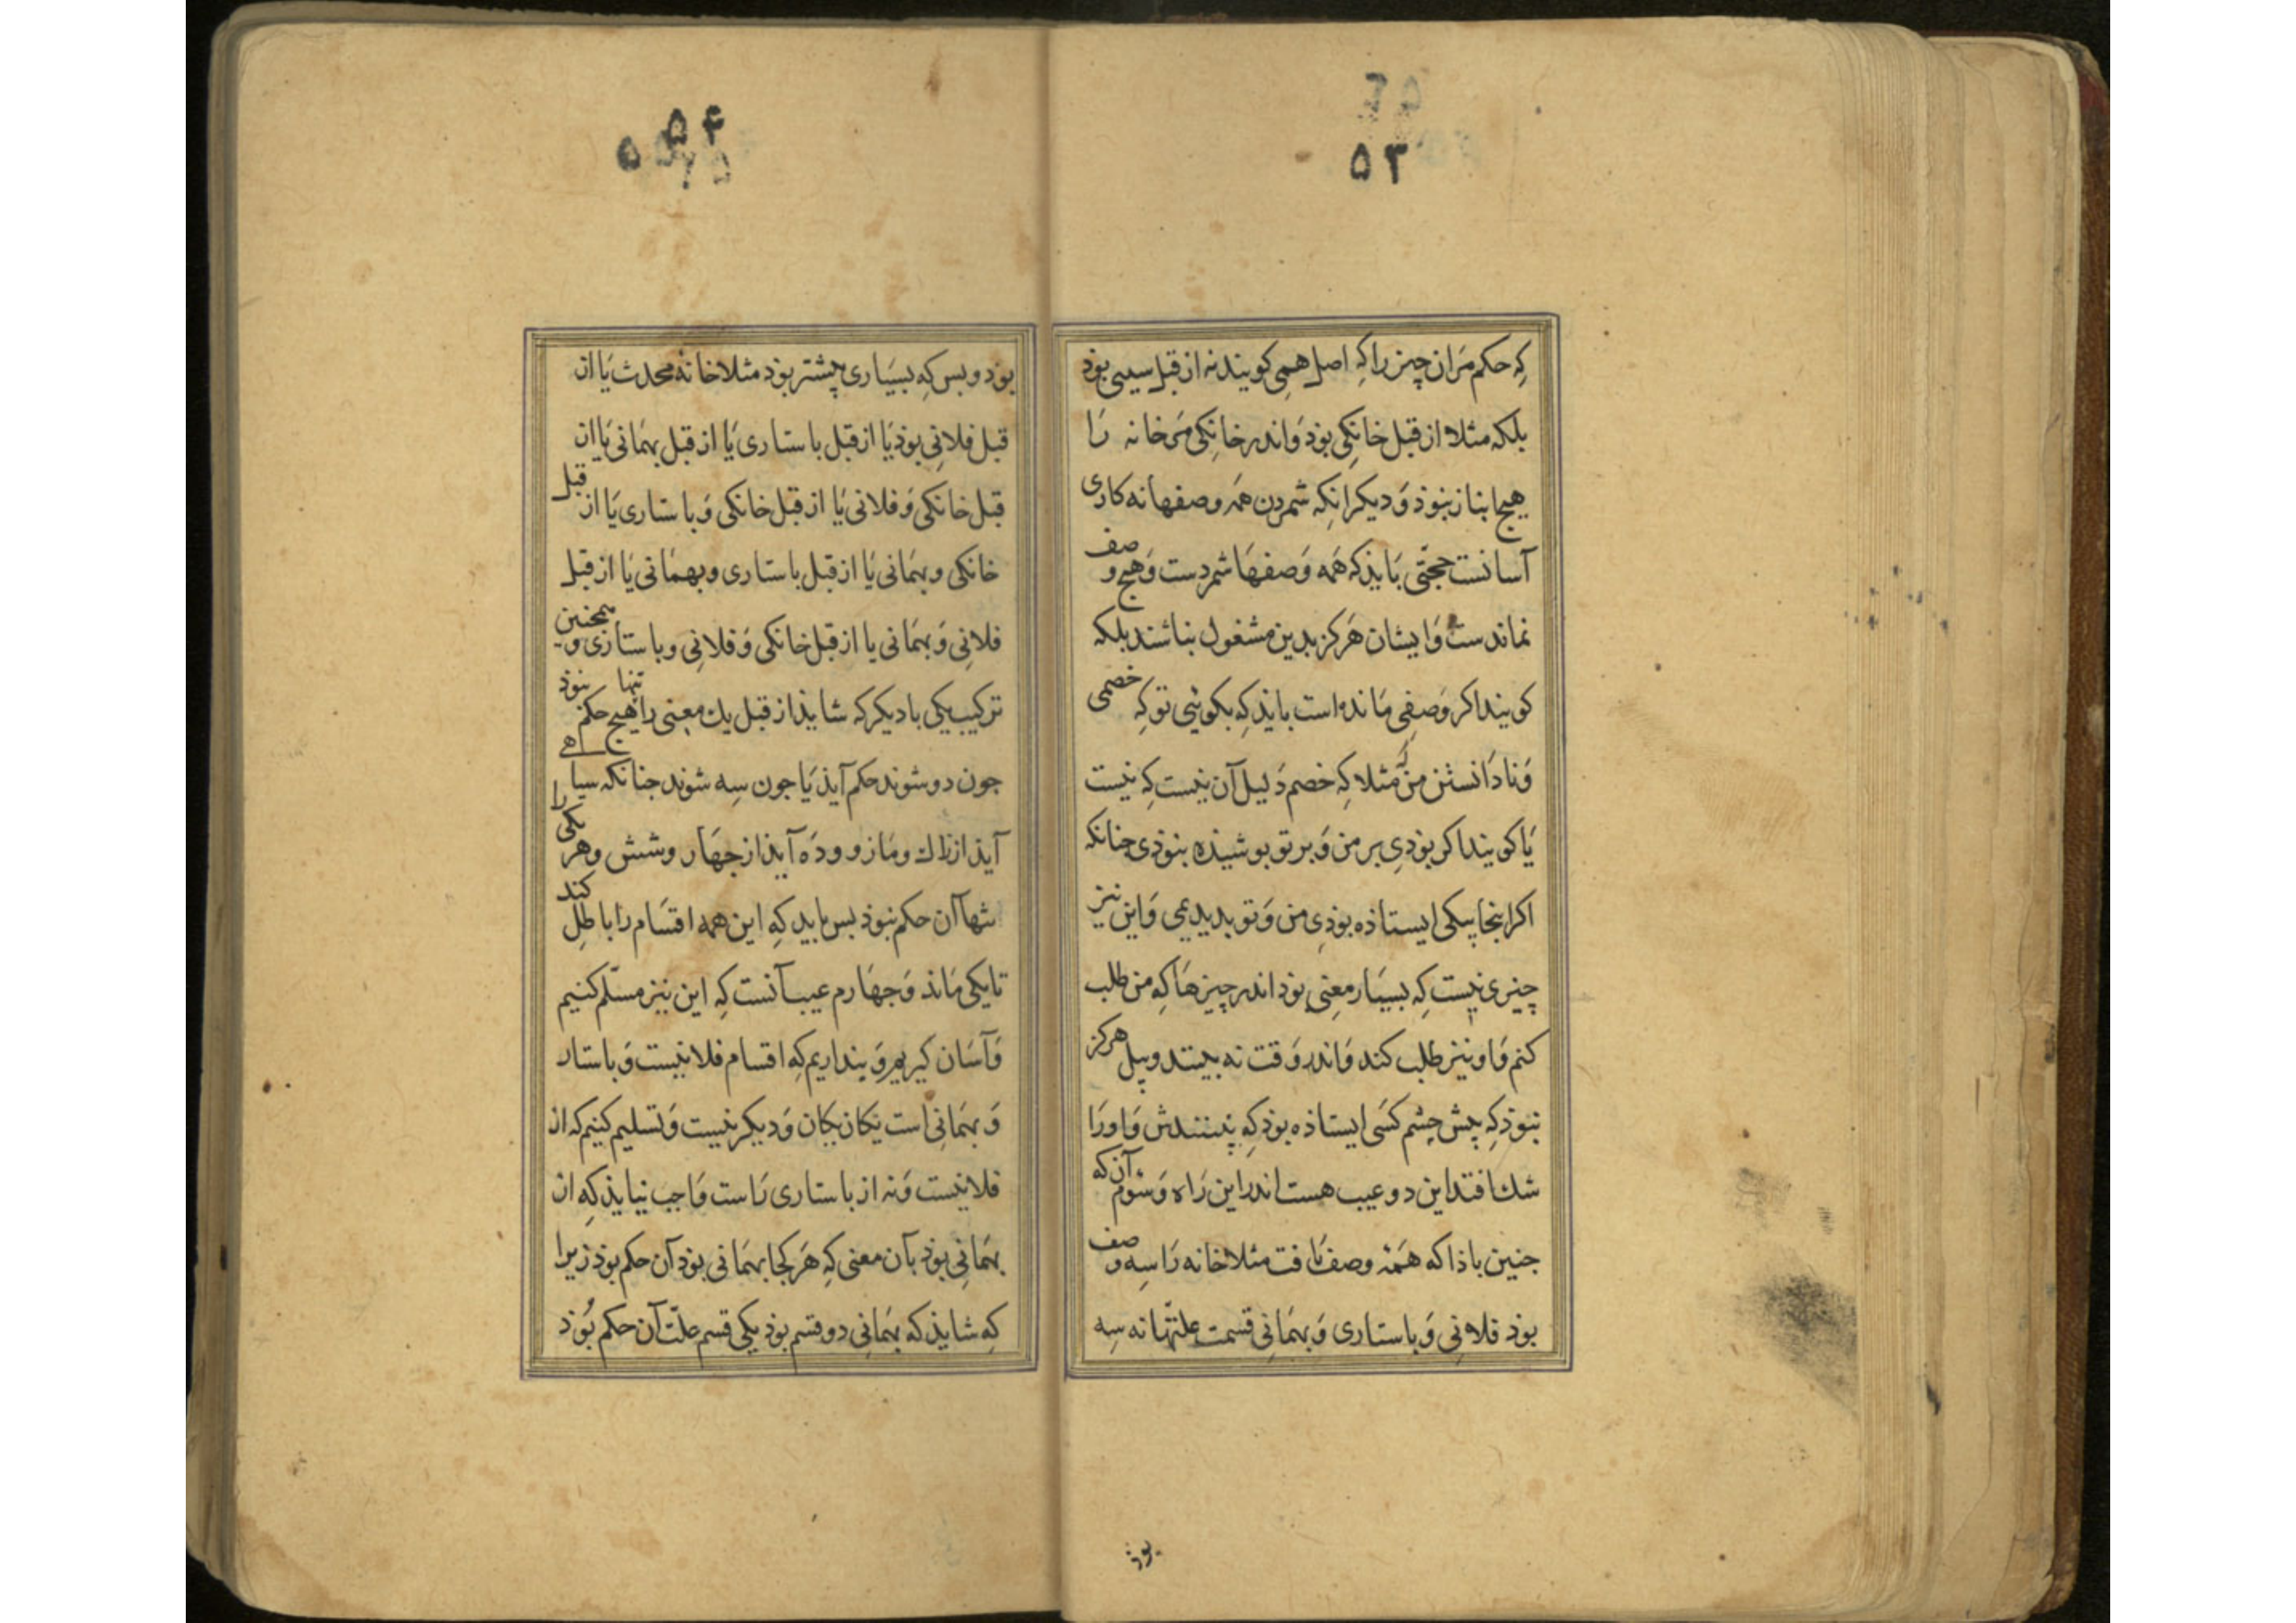 ۵۳
که حکم مران چیز را که اصل همی کویند نه از قبل سببی بوذ
بلکه مثلا از قبل خانکی بوذ و اندر خانکی مر خانه را
هیچ انباز نبوذ و دیکر انکه شمردن همه وصفها نه کاری
آسانست حجتی بایذ که همه وصفها شمردست و هیچ وصف
نماندست و ایشان هرکز بدین مشغول نباشند بلکه
کویند اکر وصفی مانده است بایذ که بکوئی تو که خصمی
و نادانستن من مثلا که خصم دلیل آن نیست که نیست
یا کویند اکر بوذی بر من و بر تو بوشیذه نبوذی جنانکه
اکر اینجا پیلی ایستاذه بوذی من و تو بدیدیمی و این نیز
چیزی نیست که بسیار معنی بوذ اندر چیزها که من طلب
کنم و او نیز طلب کند و اندر وقت نه بیند و پیل هرکز
نبوذ که پیش چشم کسی ایستاذه بوذ که نبیندش و او را
شک افتد این دو عیب هست اندر این راه و سوم آن که
جنین باذا که همه وصف یافت مثلا خانه را سه وصف
بوذ فلانی و باستاری و بهمانی قسمت علتها نه سه
بوذ
۵۴
بوذ و بس که بسیاری بیشتر بوذ مثلا خانه محدث یا از
قبل فلانی بوذ یا از قبل باستاری یا از قبل بهمانی یا از
قبل خانکی و فلانی یا از قبل خانکی و باستاری یا از قبل
خانکی و بهمانی یا از قبل باستاری و بهمانی یا از قبل
فلانی و بهمانی یا از قبل خانکی و فلانی و باستاری و همجنین
ترکیب یکی با دیکر که شایذ از قبل یک معنی را تنها هیچ حکم نبوذ
جون دو شوند حکم آیذ یا جون سه شوند جنانکه سیاهی
آیذ از زاک و مازو و ده آیذ از جهار و شش و هر یکی را
تنها آن حکم نبوذ بس باید که این همه اقسام را باطل کند
تا یکی ماند و جهارم عیب آنست که این نیز مسلّم کنیم
و آسان کیریم و بنداریم که اقسام فلانیست و باستار
و بهمانی است یکان یکان و دیکر نیست و تسلیم کنیم که از
فلانیست و نه از باستاری راست واجب نیایذ که از
بهمانی بوذ بآن معنی که هر کجا بهمانی بوذ آن حکم بوذ زیرا
که شایذ که بهمانی دو قسم بوذ یکی قسم علّت آن حکم بُوذ